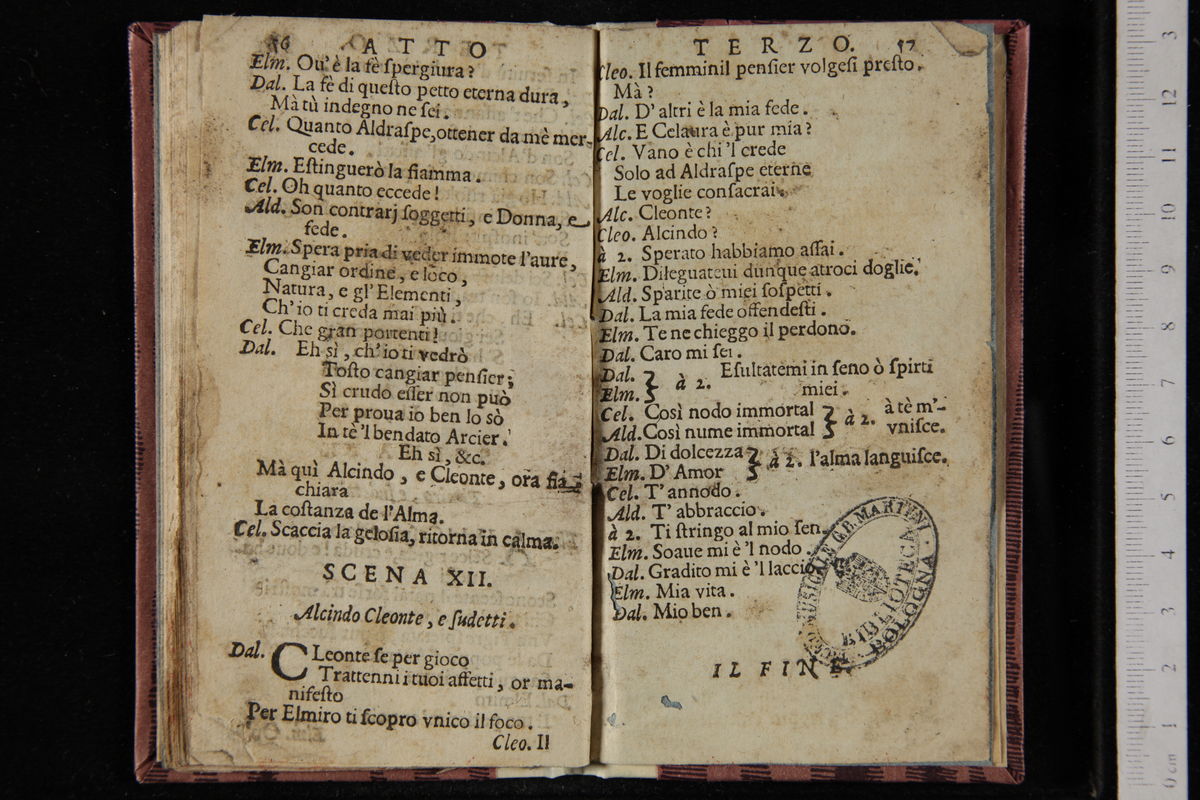 56 ATTO
Elm. Ou' è la fè ſpergiura?
Dal. La fè di queſto petto eterna dura,
Mà tù indegno ne ſei.
Cel. Quanto Aldraſpe, ottener da mè mer-
cede.
Elm. Eſtinguerò la fiamma.
Cel. Oh quanto eccede!
Ald. Son contrarj ſoggetti, e Donna, e
fede.
Elm. Spera pria di veder immote l'aure,
Cangiar ordine, e loco,
Natura, e gl'Elementi,
Ch'io ti creda mai più.
Cel. Che gran portenti!
Dal. Eh sì, ch'io ti vedrò
Toſto cangiar penſier;
Sì crudo eſſer non può
Per proua io ben lo sò
In tè 'l bendato Arcier.
Eh sì, &c.
Mà quì Alcindo, e Cleonte, ora fia
chiara
La coſtanza de l'Alma.
Cel. Scaccia la geloſia, ritorna in calma.
SCENA XII.
Alcindo Cleonte, e ſudetti.
Dal. CLeonte ſe per gioco
Trattenni i tuoi affetti, or ma-
nifeſto
Per Elmiro ti ſcopro vnico il foco.
Cleo. Il
TERZO. 57
Cleo. Il femminil penſier volgeſi preſto.
Mà?
Dal. D'altri è la mia fede.
Alc. E Celaura è pur mia?
Cel. Vano è chi 'l crede
Solo ad Aldraſpe eterne
Le voglie conſacrai.
Alc. Cleonte?
Cleo. Alcindo?
à 2. Sperato habbiamo aſſai.
Elm. Dileguateui dunque atroci doglie.
Ald. Sparite ò miei ſoſpetti.
Dal. La mia fede offendeſti.
Elm. Te ne chieggo il perdono.
Dal. Caro mi ſei.
Dal. } à 2. Eſultatemi in ſeno ò ſpirti
Elm. } miei.
Cel. Così nodo immortal } à 2. à tè m'-
Ald. Così nume immortal } vniſce.
Dal. Di dolcezza } à 2. l'alma languiſce.
Elm. D'Amor }
Cel. T'annodo.
Ald. T'abbraccio.
à 2. Ti ſtringo al mio ſen.
Elm. Soaue mi è 'l nodo.
Dal. Gradito mi è 'l laccio
Elm. Mia vita.
Dal. Mio ben.
IL FINE.
MUSICALE G.B. MARTINI
BIBLIOTECA
BOLOGNA